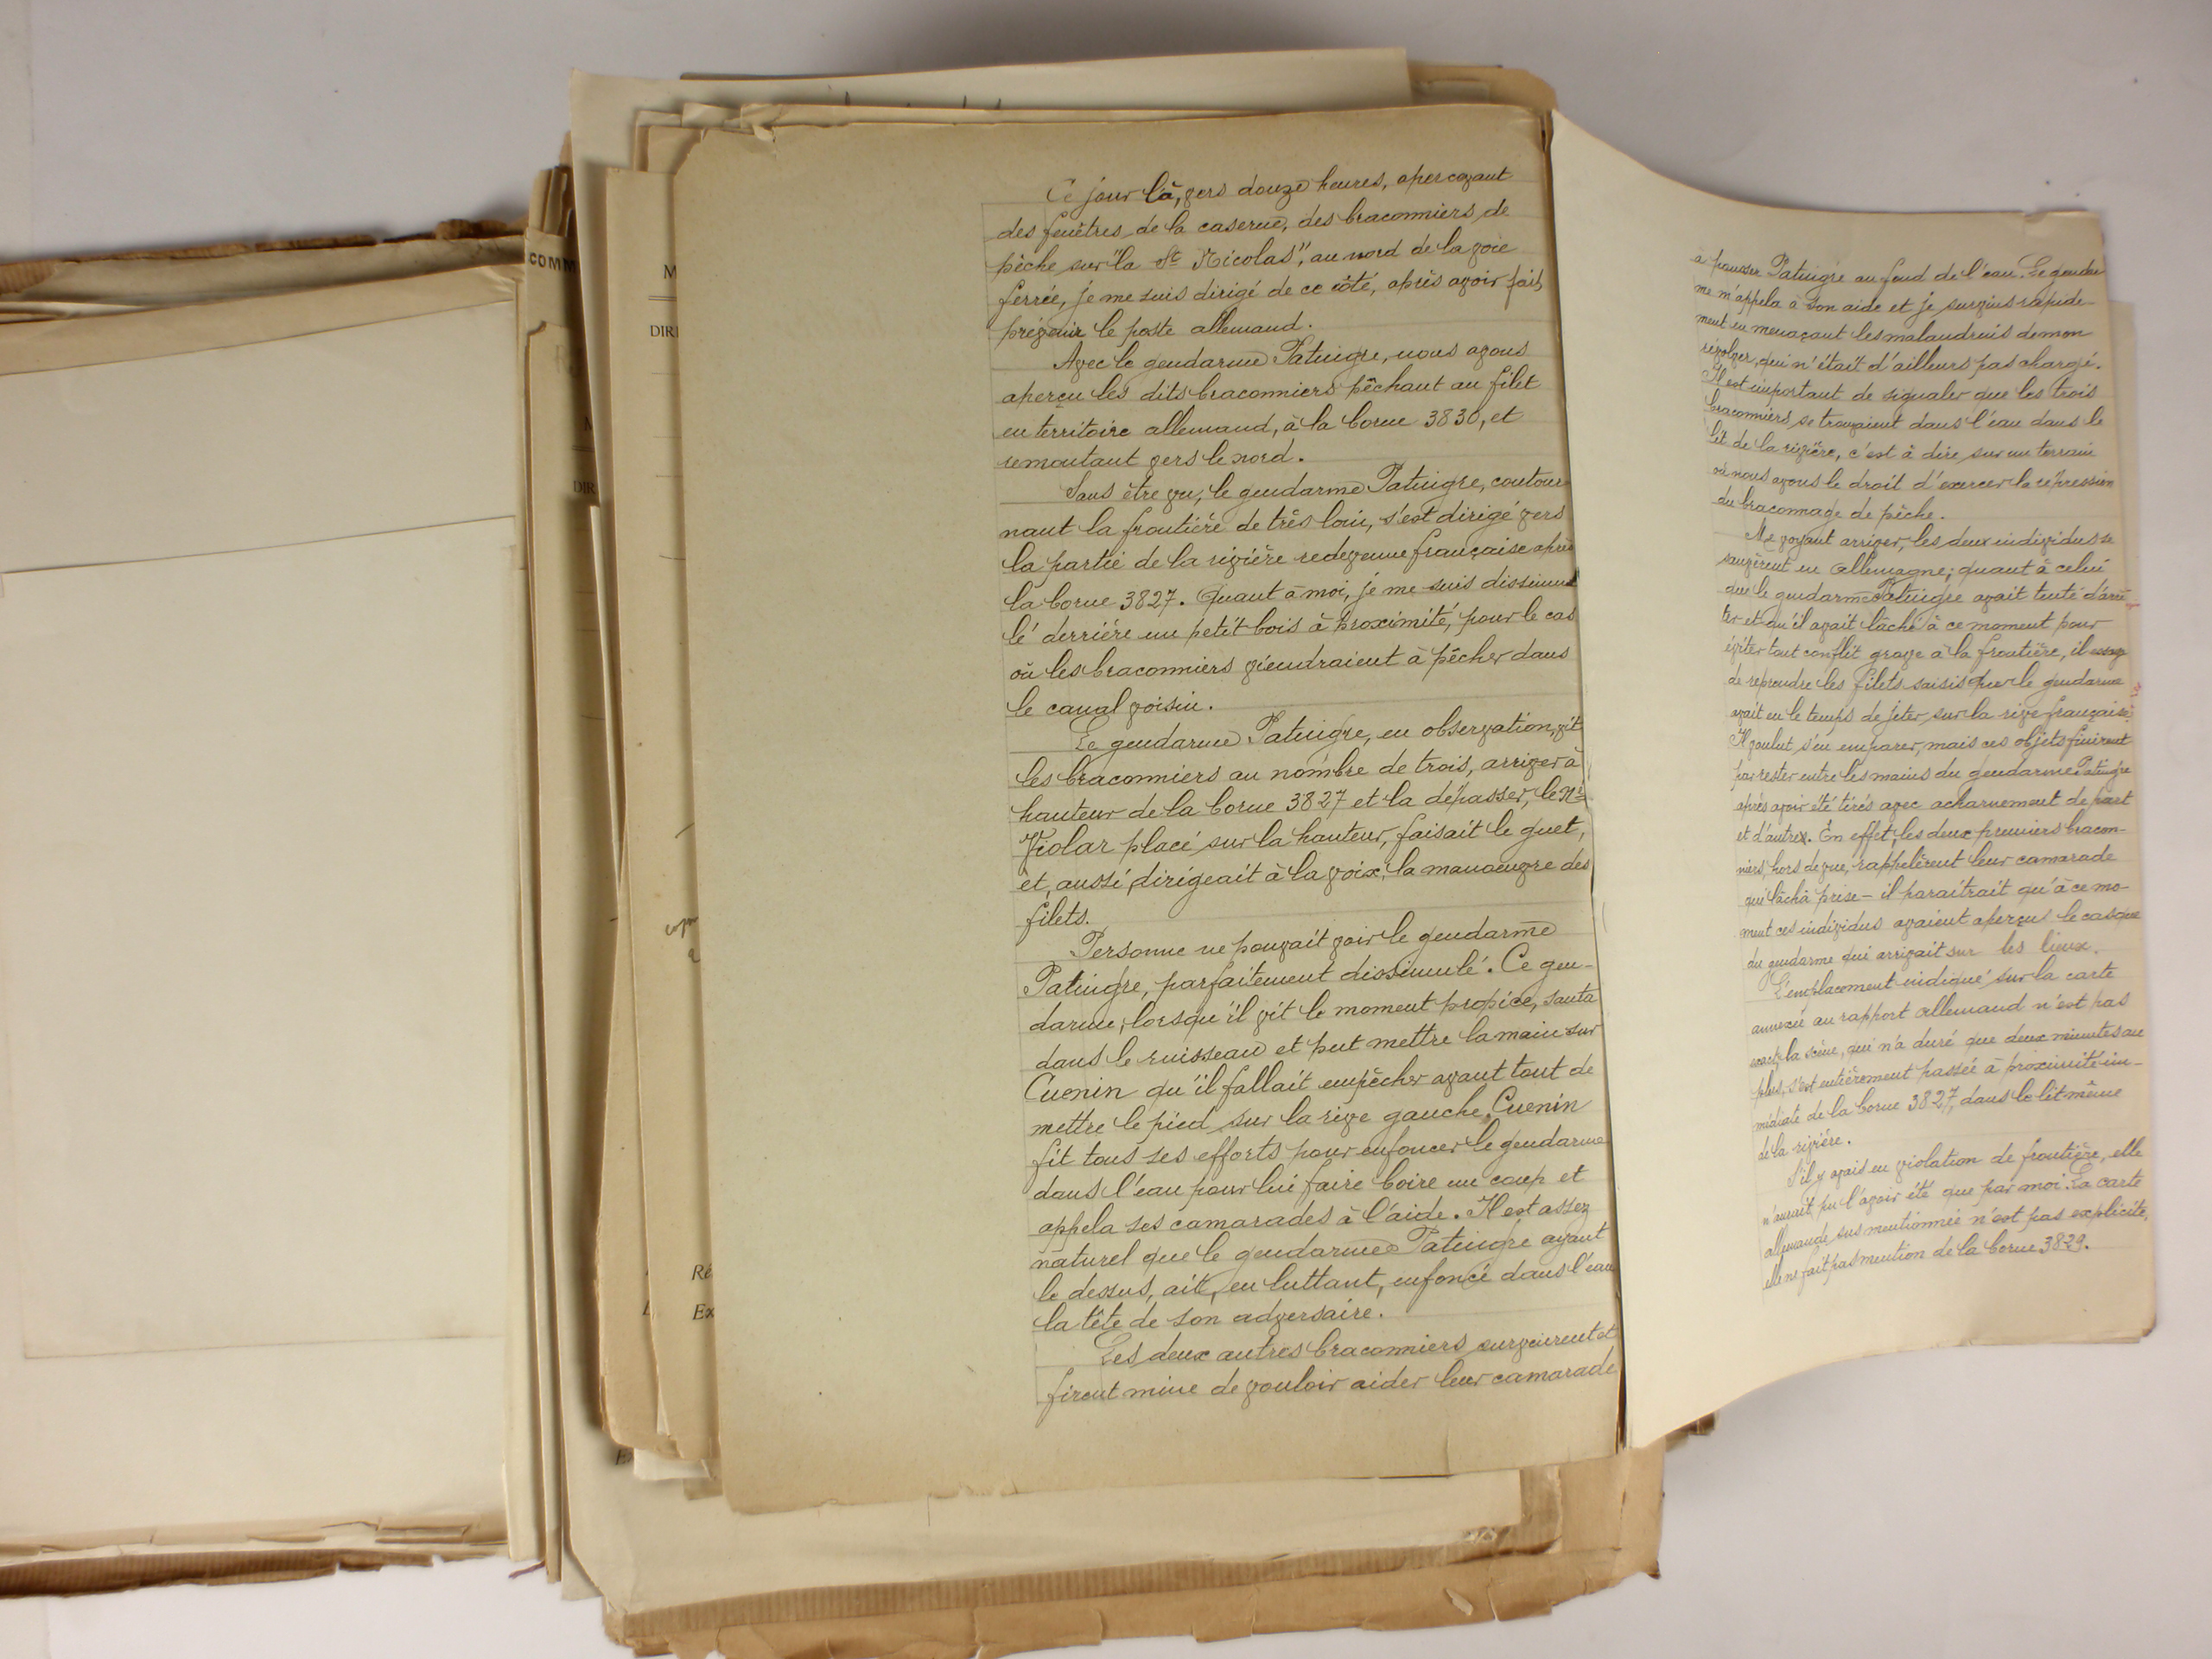 COMM
M
DIRE
M
DIR
Ré
Ex
Ce jour là, vers douze heures, apercevant
des fenêtres de la caserne, des braconniers de
pêche sur "la St Nicolas", au nord de la voie
ferrée, je me suis dirigé de ce côté, après avoir fait
prévenir le poste allemand.
Avec le gendarme Patingre, nous avons
aperçu les dits braconniers pêchant au filet
en territoire allemand, à la borne 3830, et
remontant vers le nord.
Sans être vu, le gendarme Patingre, contour-
nant la frontière de très loin, s'est dirigé vers
la partie de la rivière redevenue française après
la borne 3827. Quant à moi, je me suis dissimu
lé derrière un petit bois à proximité, pour le cas
où les braconniers viendraient à pêcher dans
le canal voisin.
Le gendarme Patingre, en observation, vit
les braconniers au nombre de trois, arriver à
hauteur de la borne 3827 et la dépasser, le né
Violar placé sur la hauteur, faisait le guet,
et, aussi, dirigeait à la voix, la manoeuvre des
filets.
Personne ne pouvait voir le gendarme
Patingre, parfaitement dissimulé. Ce gen-
darme, lorsqu'il vit le moment propice, sauta
dans le ruisseau et put mettre la main sur
Cuenin qu'il fallait empêcher avant tout de
mettre le pied sur la rive gauche. Cuenin
fit tous ses efforts pour enfoncer le gendarme
dans l'eau pour lui faire boire un coup et
appela ses camarades à l'aide. Il est assez
naturel que le gendarme Patingre ayant
le dessus, ait, en luttant, enfoncé dans l'eau
la tête de son adversaire.
Les deux autres braconniers survinrent et
firent mine de vouloir aider leur camarade
à pousser Patingre au fond de l'eau. Le gendar
me m'appela à son aide et je survins rapide-
ment en menaçant les malandrins de mon
révolver, qui n'était d'ailleurs pas chargé.
Il est important de signaler que les trois
braconniers se trouvaient dans l'eau dans le
lit de la rivière, c'est à dire sur un terrain
où nous avons le droit d'exercer la répression
du braconnage de pêche.
Me voyant arriver, les deux individus se
sauvèrent en Allemagne; quant à celui
que le gendarme Patingre avait tenté d'arrê
ter et qu'il avait lâché à ce moment pour
éviter tout conflit grave à la frontière, il
de reprendre les filets saisis que le gendarme
avait eu le temps de jeter sur la rive française.
Il voulut s'en emparer, mais ces objets finirent
par rester entre les mains du gendarme Patingre
après avoir été tirés avec acharnement de part
et d'autre. En effet, les deux premiers bracon-
niers, hors de vue, rappelèrent leur camarade
qui lâcha prise - il paraîtrait qu'à ce mo-
ment ces individus avaient aperçus le casque
du gendarme qui arrivait sur les lieux.
L'emplacement indiqué sur la carte
annexée au rapport allemand n'est pas
exact; la scène, qui n'a duré que deux minutes au
plus, s'est entièrement passée à proximité im-
médiate de la borne 3827, dans le lit même
de la rivière.
S'il y avait eu violation de frontière, elle
n'aurait pu l'avoir été que par moi. La carte
allemande sus mentionnée n'est pas explicite,
elle ne fait pas mention de la borne 3829.